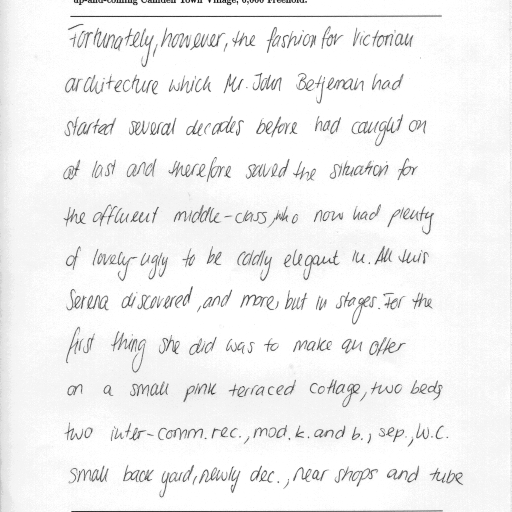 up-and-coming Camden Town Village, 6,000 Freehold.
Fortunately, however, the fashion for Victorian
architecture which Mr. John Betjeman had
started several decades before had caught on
at last and therefore saved the situation for
the affluent middle-class, who now had plenty
of lovely-ugly to be oddly elegant in. All this
Serena discovered, and more, but in stages. For the
first thing she did was to make an offer
on a small pink terraced cottage, two beds
two inter-comm. rec., mod. k. and b., sep., W.C.
small back yard, newly dec., near shops and tube